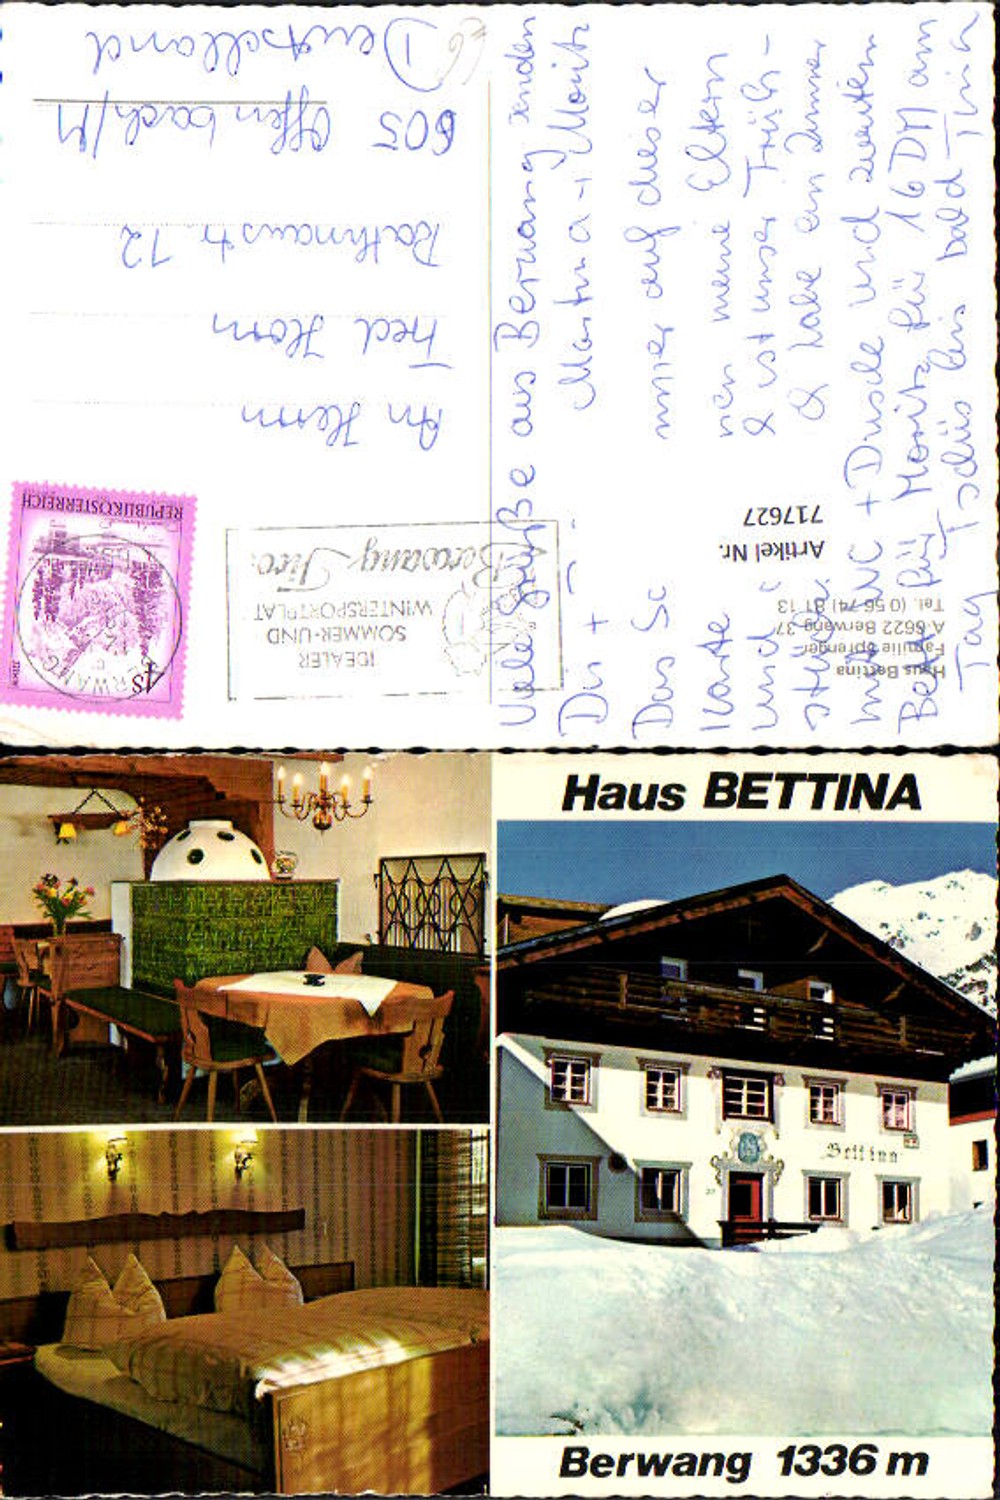 Viele Grüße aus Berwang senden
Dir + Martina + Moritz
Das Sc mier auf dieser
Karte nen meine Eltern
und & ist unser Früh-
stücks. & habe ein Zimmer
mit WC + Dusche und zweitem
Bett für Moritz für 16 DM am
Tag Tschüs bis bald
Haus Bettina
Familie Sprenger
A-6622 Berwang 37
Tel. (0 56 74) 81 13
Artikel Nr.
717627
IDEALER
SOMMER-UND
WINTERSPORTPLAT
Berwang Tiro
REPUBLIK ÖSTERREICH
4S
BERWANG
An Herrn
Fred Horn
Rathenaustr. 72
605 Offenbach/M
Deutschland
Haus BETTINA
Bettina
Berwang 1336 m